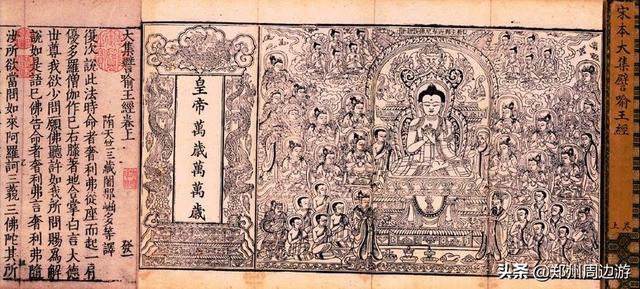 宋本大集譬喻王經
上
皇帝萬歲萬萬歲
大集譬喻王經卷上
隋天竺三藏闍那崛多等譯 發一
復次說此法時命者奢利弗從座而起一肩
優多羅僧伽作已右膝著地合掌白言大德
世尊我欲少問願佛聽許如我所問賜為解
說如是語已佛告命者奢利弗言奢利弗隨
汝所欲當問如來阿羅訶三藐三佛陀其所
头条 @郑州周边游